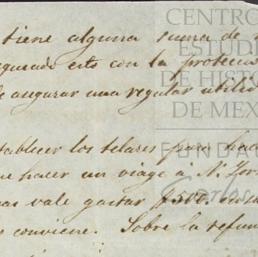 tiene alguna suma de
esto con la protecci
de asegurar una regular utilid
tablecer los telares para hac
que hacer un viage à N. Yor
mas vale gastar $500.
conviene. Sobre la refun
CENTRO
ESTUDI
DE HISTO
DE MEX
FUNDAC
Carlos